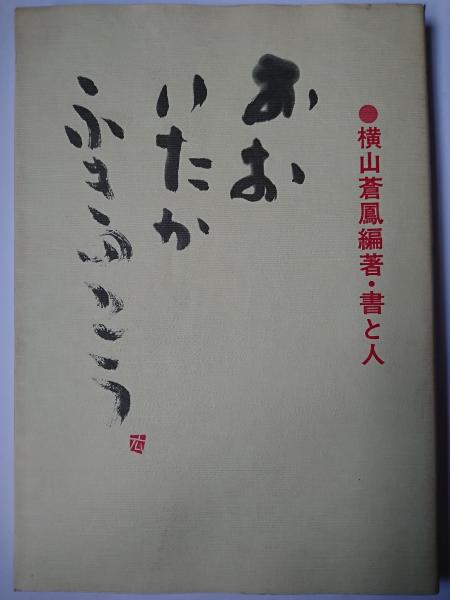 ●横山蒼鳳編著・書と人
おお
いたか
ふきのとう